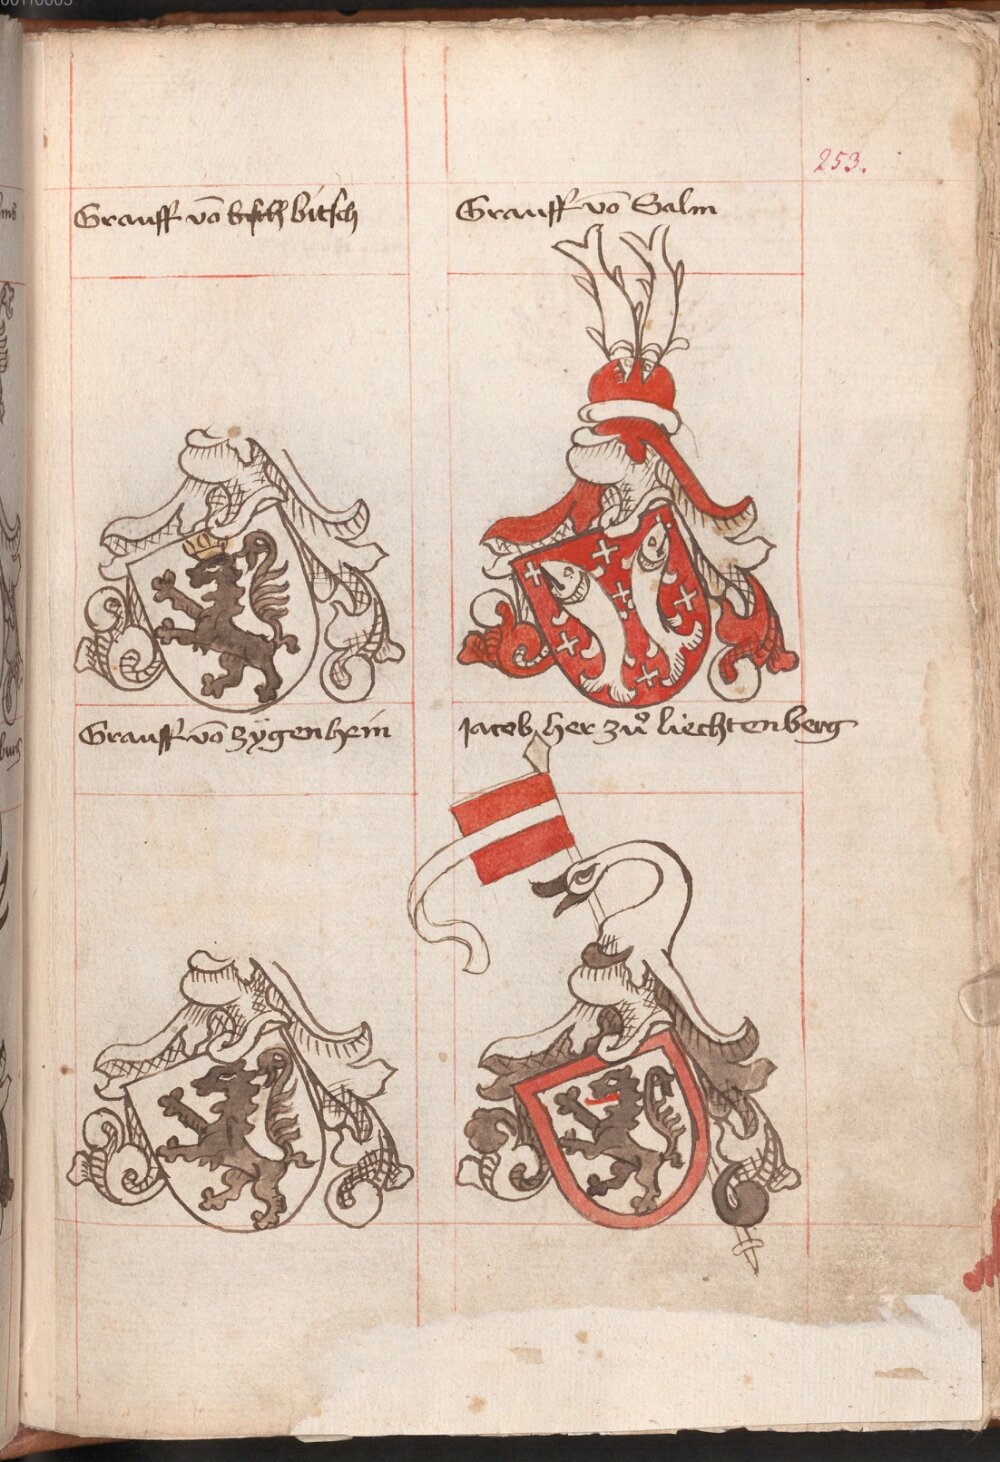 253.
Grauff võ bitsch
Grauff võ Salm
Grauff võ zÿgenhein
Jacob her zuͦ liechtenberg